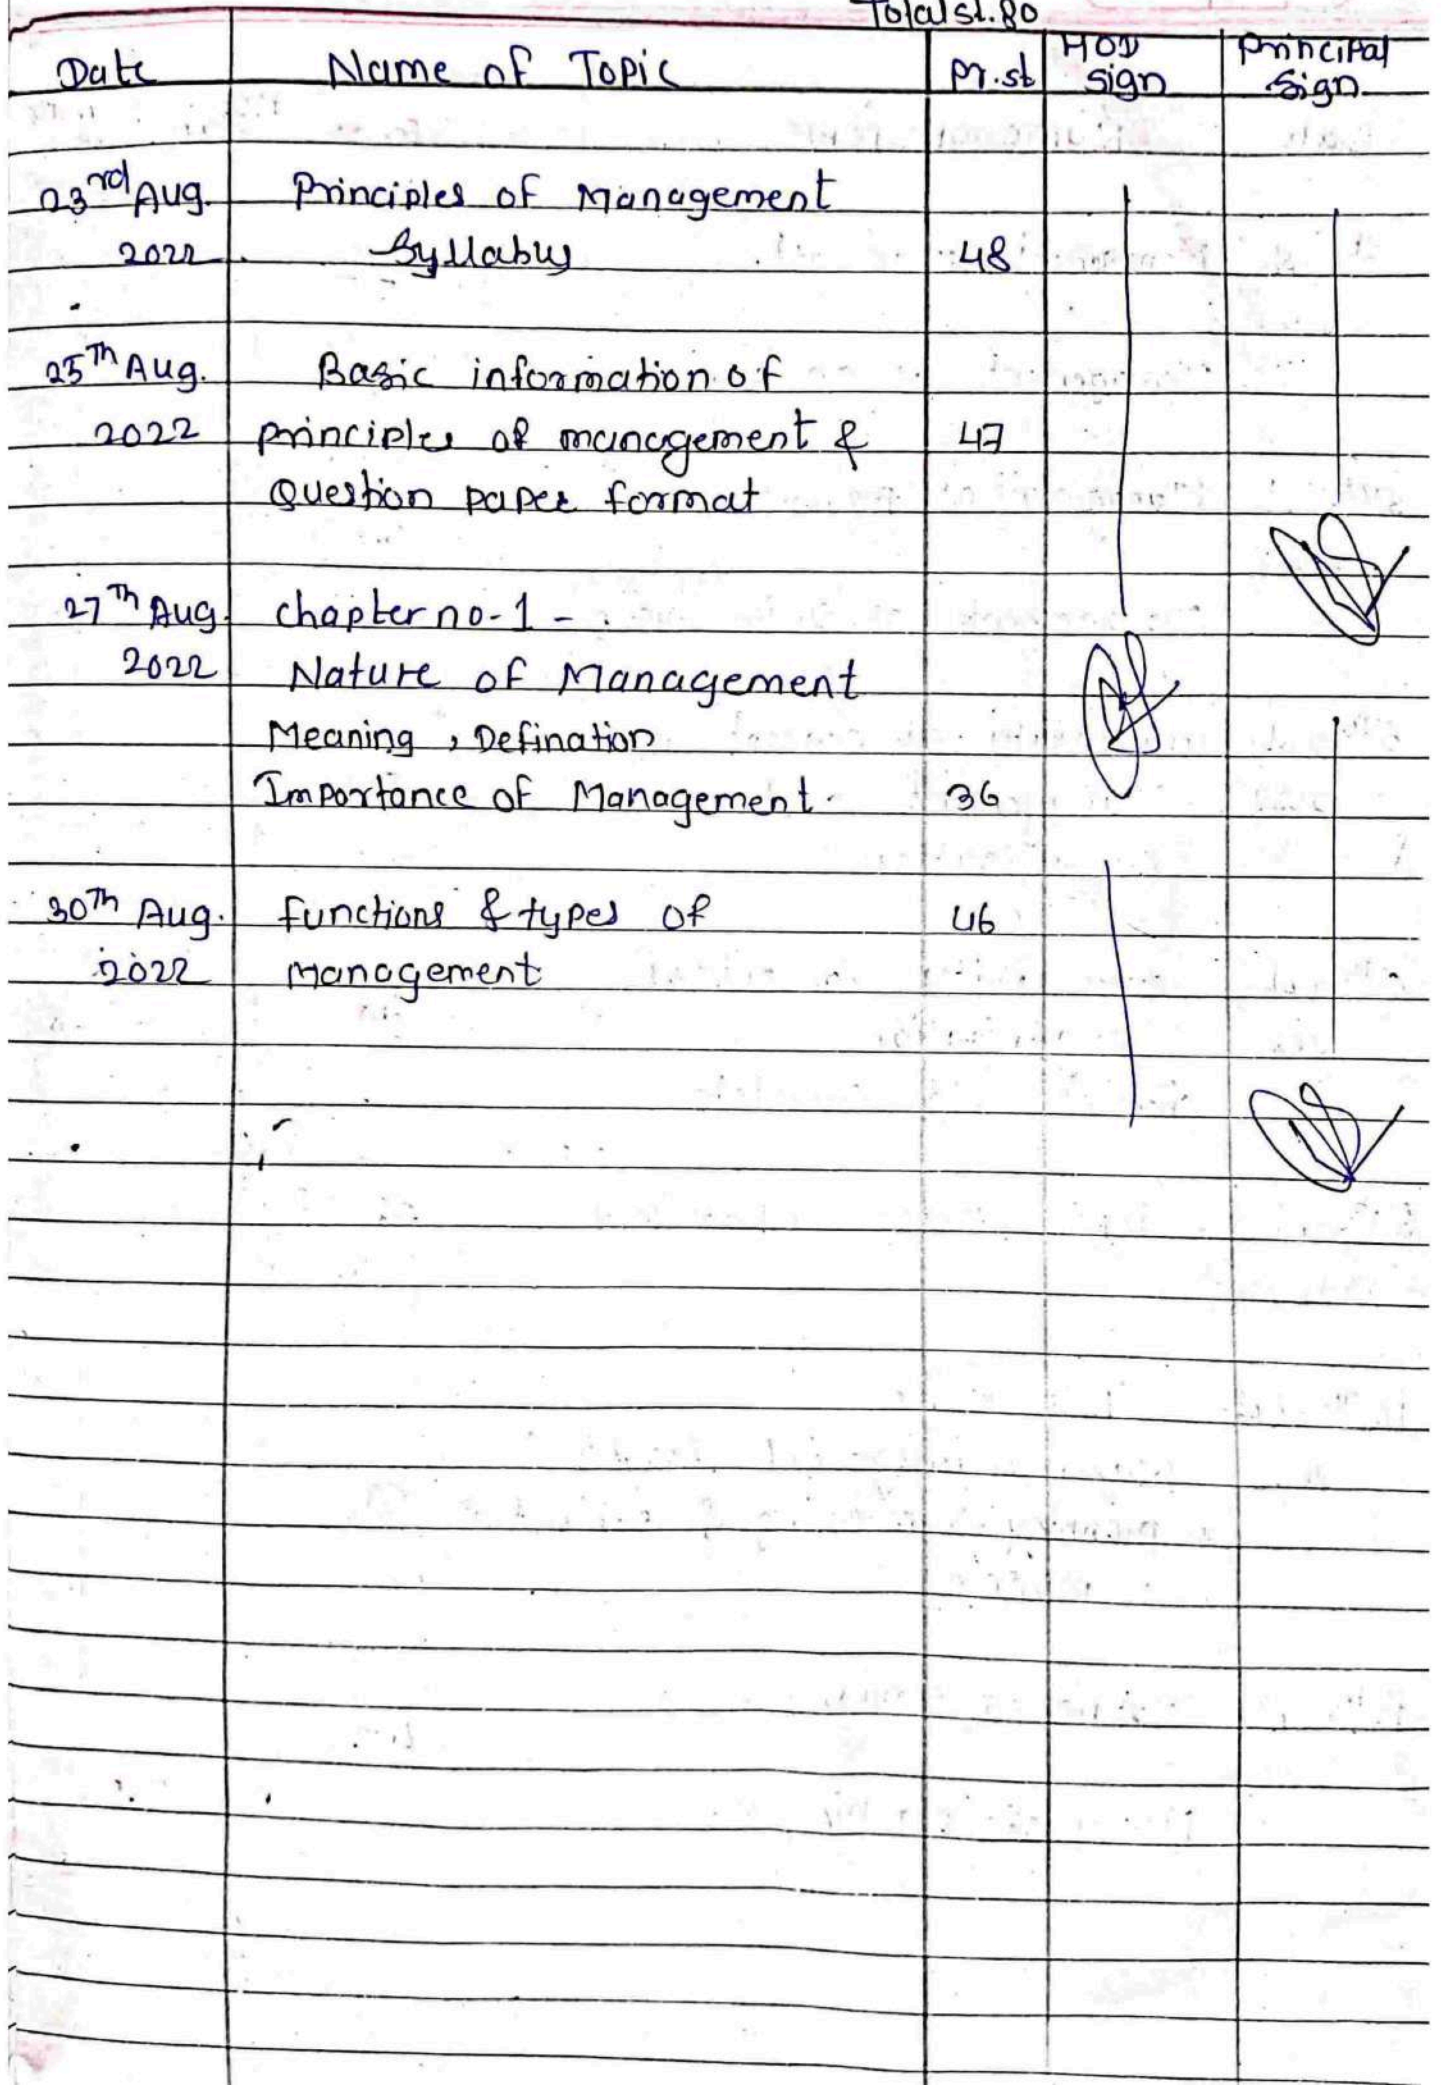 Total st. 80
Date Name of Topic Pr.st HOD sign Principal Sign
23rd Aug. Principles of Management
2022 Syllabus 48
25Th Aug. Basic information of
2022 principles of management & 47
Question paper format
27Th Aug. chapter no-1 -
2022 Nature of Management
Meaning, Defination
Importance of Management. 36
30Th Aug. functions & types of 46
2022 management